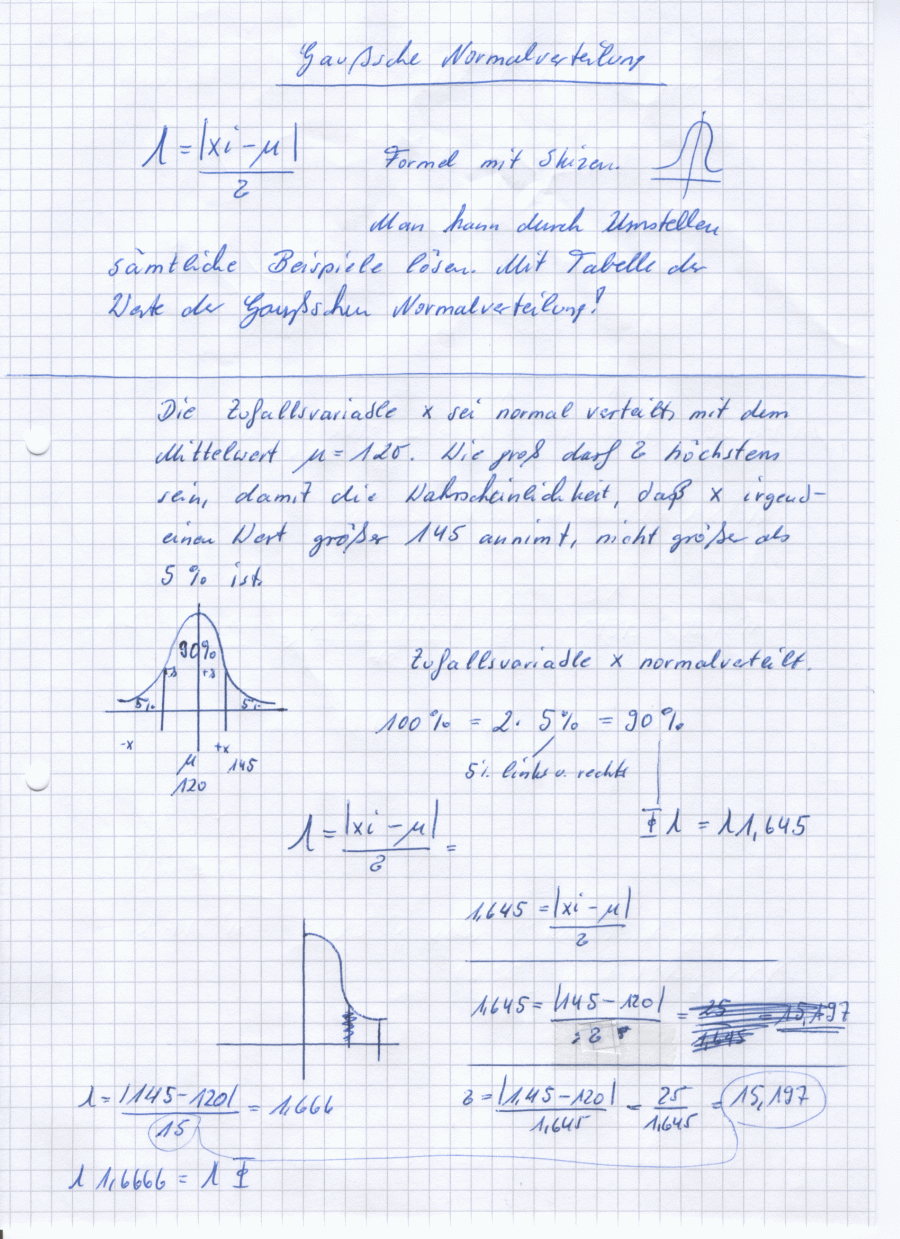 Gaußsche Normalverteilung
λ = |xi – μ| / σ
Formel mit Skizen.
Man kann durch Umstellen
sämtliche Beispiele lösen. Mit Tabelle der
Werte der Gaußschen Normalverteilung!
Die Zufallsvariable x sei normal verteilt, mit dem
Mittelwert μ = 120. Wie groß darf σ höchstens
sein, damit die Wahrscheinlichkeit, daß x irgend-
einen Wert größer 145 annimt, nicht größer als
5 % ist.
90%
5% 5%
-x +x 145
μ
120
Zufallsvariable x normalverteilt.
100% = 2 · 5% = 90%
5% links u. rechts
λ = |xi – μ| / σ =
Φ λ = λ 1,645
1,645 = |xi – μ| / σ
1,645 = |145 – 120| / σ = 25 / 1,645 = 15,197
λ = |145 – 120| / 15 = 1,666
σ = |1,45 – 120| / 1,645 = 25 / 1,645 = 15,197
λ 1,6666 = λ Φ